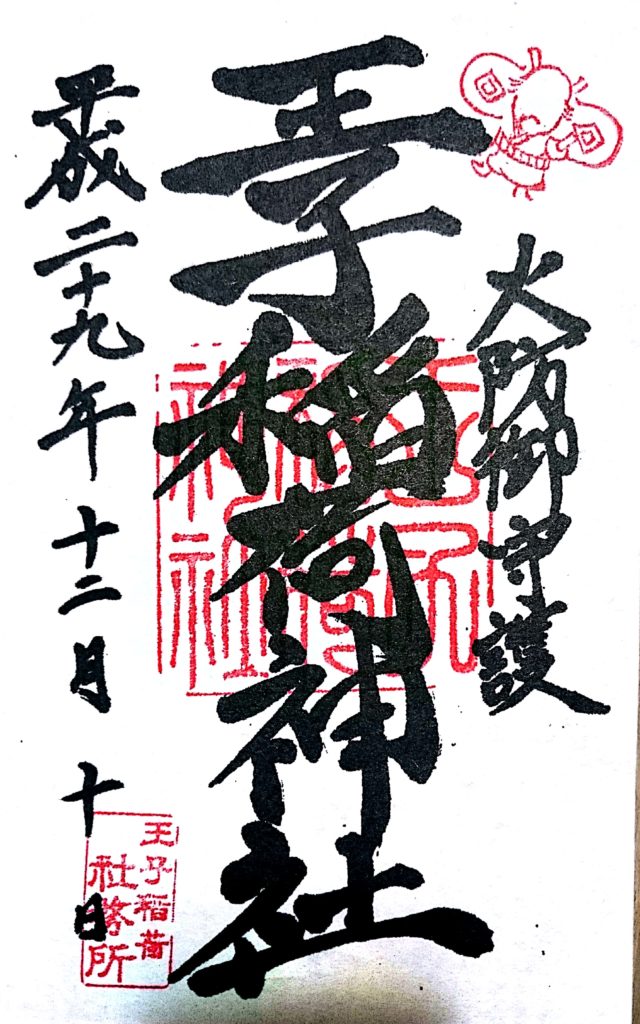 火防御守護
王子稲荷神社
王子稲荷神社
平成二十九年十二月十日
王子稲荷
社務所